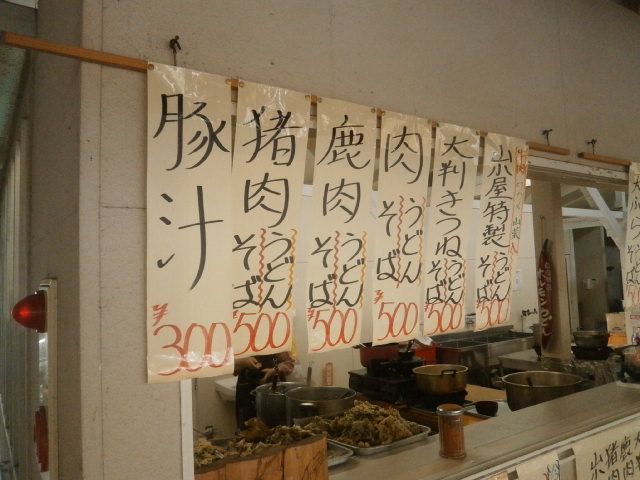 豚汁
¥300
猪肉
うどん
そば
¥500
鹿肉
うどん
そば
¥500
肉
うどん
そば
¥500
大判きつね
うどん
そば
¥500
山小屋特製
うどん
そば
¥500
猪肉
鹿肉